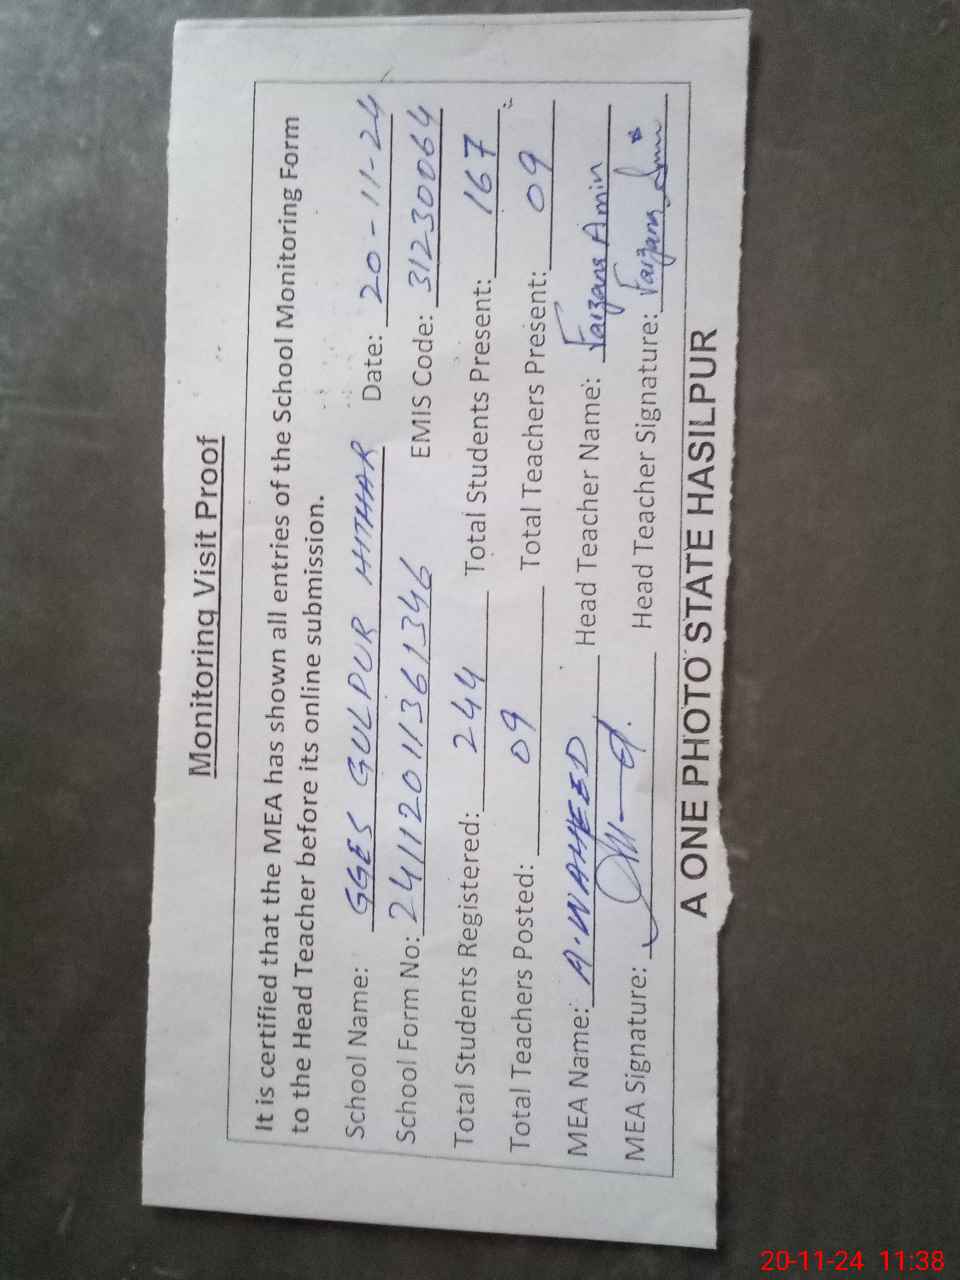 Monitoring Visit Proof
It is certified that the MEA has shown all entries of the School Monitoring Form
to the Head Teacher before its online submission.
School Name: GGES GULPUR HITHAR Date: 20-11-24
School Form No: 24112011361346 EMIS Code: 31230064
Total Students Registered: 244 Total Students Present: 167
Total Teachers Posted: 09 Total Teachers Present: 09
MEA Name: A.WAHEED Head Teacher Name: Faizana Amin
MEA Signature: Head Teacher Signature: Faizana
A ONE PHOTO STATE HASILPUR
20-11-24 11:38